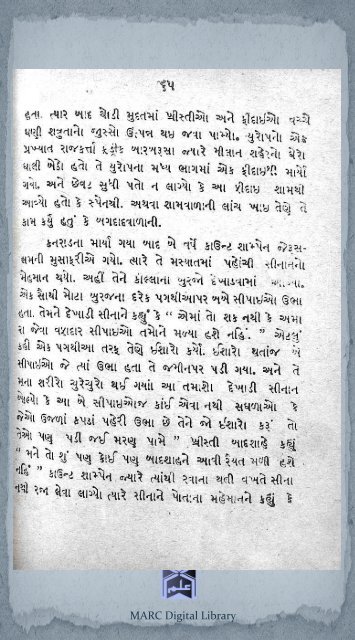 ૬૫
હતા. ત્યાર બાદ થોડી મુદતમાં ખ્રીસ્તીઓ અને ફીદાઈઓ વચ્ચે
ઘણી શત્રુતાનો જુસ્સો ઉત્પન્ન થઈ જવા પામ્યો. યુરોપનો એક
પ્રખ્યાત રાજકર્ત્તા ફ્રેડ્રીક બારબરૂસા જ્યારે મીલાન શહેરને ઘેરો
ઘાલી બેઠો હતો તે યુરોપના મધ્ય ભાગમાં એક ફીદાઈથી માર્યો
ગયા, અને છેવટ સુધી પતો ન લાગ્યો કે આ ફીદાઈ શામથી
આવ્યો હતો કે સ્પેનથી. અથવા શામવાળાની લાંચ ખાઈ તેણે તે
કામ કર્યું હતું કે બગદાદવાળાની.
કનરાડના માર્યા ગયા બાદ બે વર્ષે કાઉન્ટ શામ્પેન જેરૂસ-
લમની મુસાફરીએ ગયો. ત્યારે તે મસ્યાતમાં પહોંચી સીનાનનો
મેહમાન થયો. અહીં તેને કીલ્લાના બુરજો દેખાડવામાં
એક સૌથી મોટા બુરજના દરેક પગથીઆપર બબે સીપાઈઓ ઉભા
હતા. તેમને દેખાડી સીનાને કહ્યું કે “ એમાં તો શક નથી કે અમા
રા જેવા વફાદાર સીપાઈઓ તમોને મળ્યા હશે નહિં. ” એટલું
કહી એક પગથીઆ તરફ તેણે ઈશારો કર્યો. ઈશારો થતાંજ બે
સીપાઈઓ જે ત્યાં ઉભા હતા તે જમીનપર પડી ગયા, અને તે
મના શરીરો ચુરેચુરો થઈ ગયાં. આ તમાશો દેખાડી સીનાન
બોલ્યો કે આ બે સીપાઈઓજ કાંઈ એવા નથી સઘળાઓ કે
જેઓ ઉજળાં કપડાં પહેરી ઉભા છે તેને જો ઈશારો કરૂં તો
તેઓ પણ પડી જઈ મરણ પામે ” ખ્રીસ્તી બાદશાહે કહ્યું
“ મને તો શું પણ કોઈ પણ બાદશાહને આવી રૈયત મળી હશે
નહિં ” કાઉન્ટ શામ્પેન જ્યારે ત્યાંથી રવાના થતી વખતે સીના
નની રજા લેવા લાગ્યો ત્યારે સીનાને પોતાના મહેમાનને કહ્યું કે
علم
MARC Digital Library